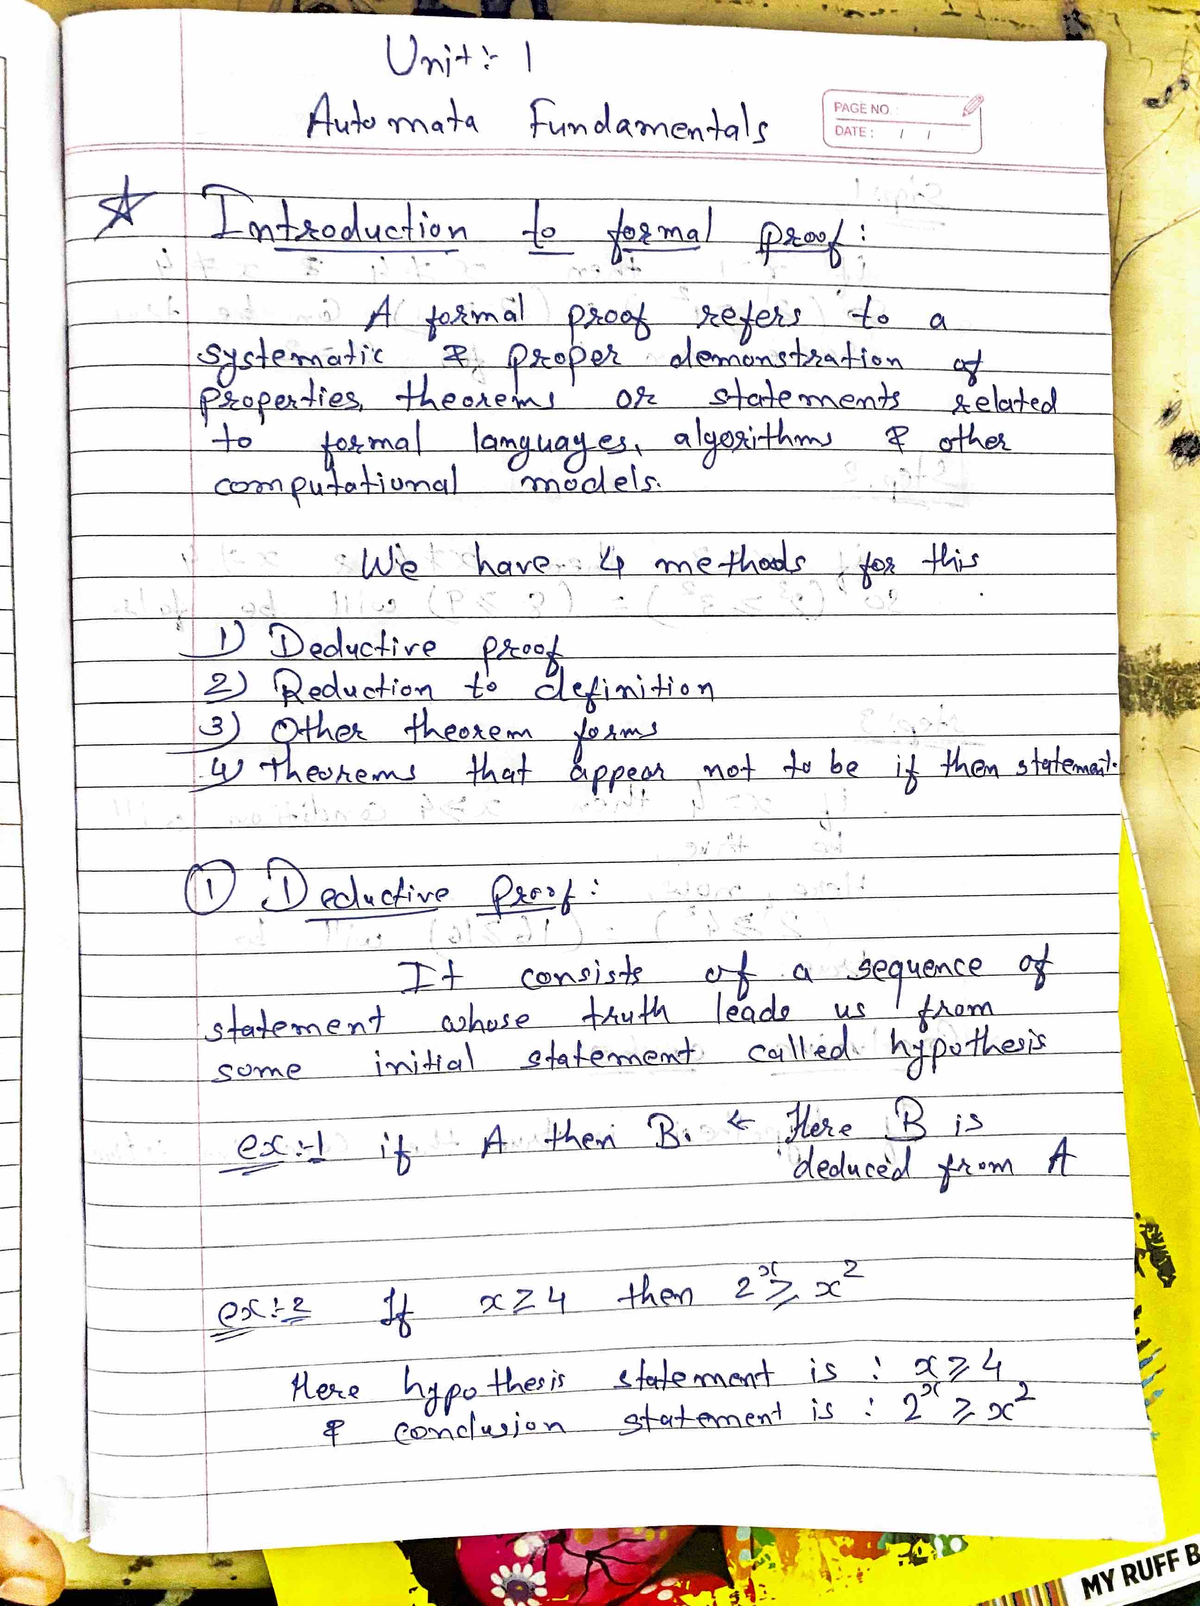 Unit :- 1
Automata Fundamentals
PAGE NO.:
DATE: / /
☆ Introduction to formal proof :
A formal proof refers to a
systematic & proper demonstration of
properties, theorems or statements related
to formal languages, algorithms & other
computational models.
We have 4 methods for this
1) Deductive proof
2) Reduction to definition
3) Other theorem forms
4) Theorems that appear not to be if then statement.
① Deductive Proof :
It consists of a sequence of
statement whose truth leads us from
some initial statement called hypothesis
ex:-1 if A then B. ← Here B is
deduced from A
ex:-2 If x ≥ 4 then 2^x ≥ x^2
Here hypothesis statement is : x ≥ 4
& conclusion statement is : 2^x ≥ x^2
MY RUFF B